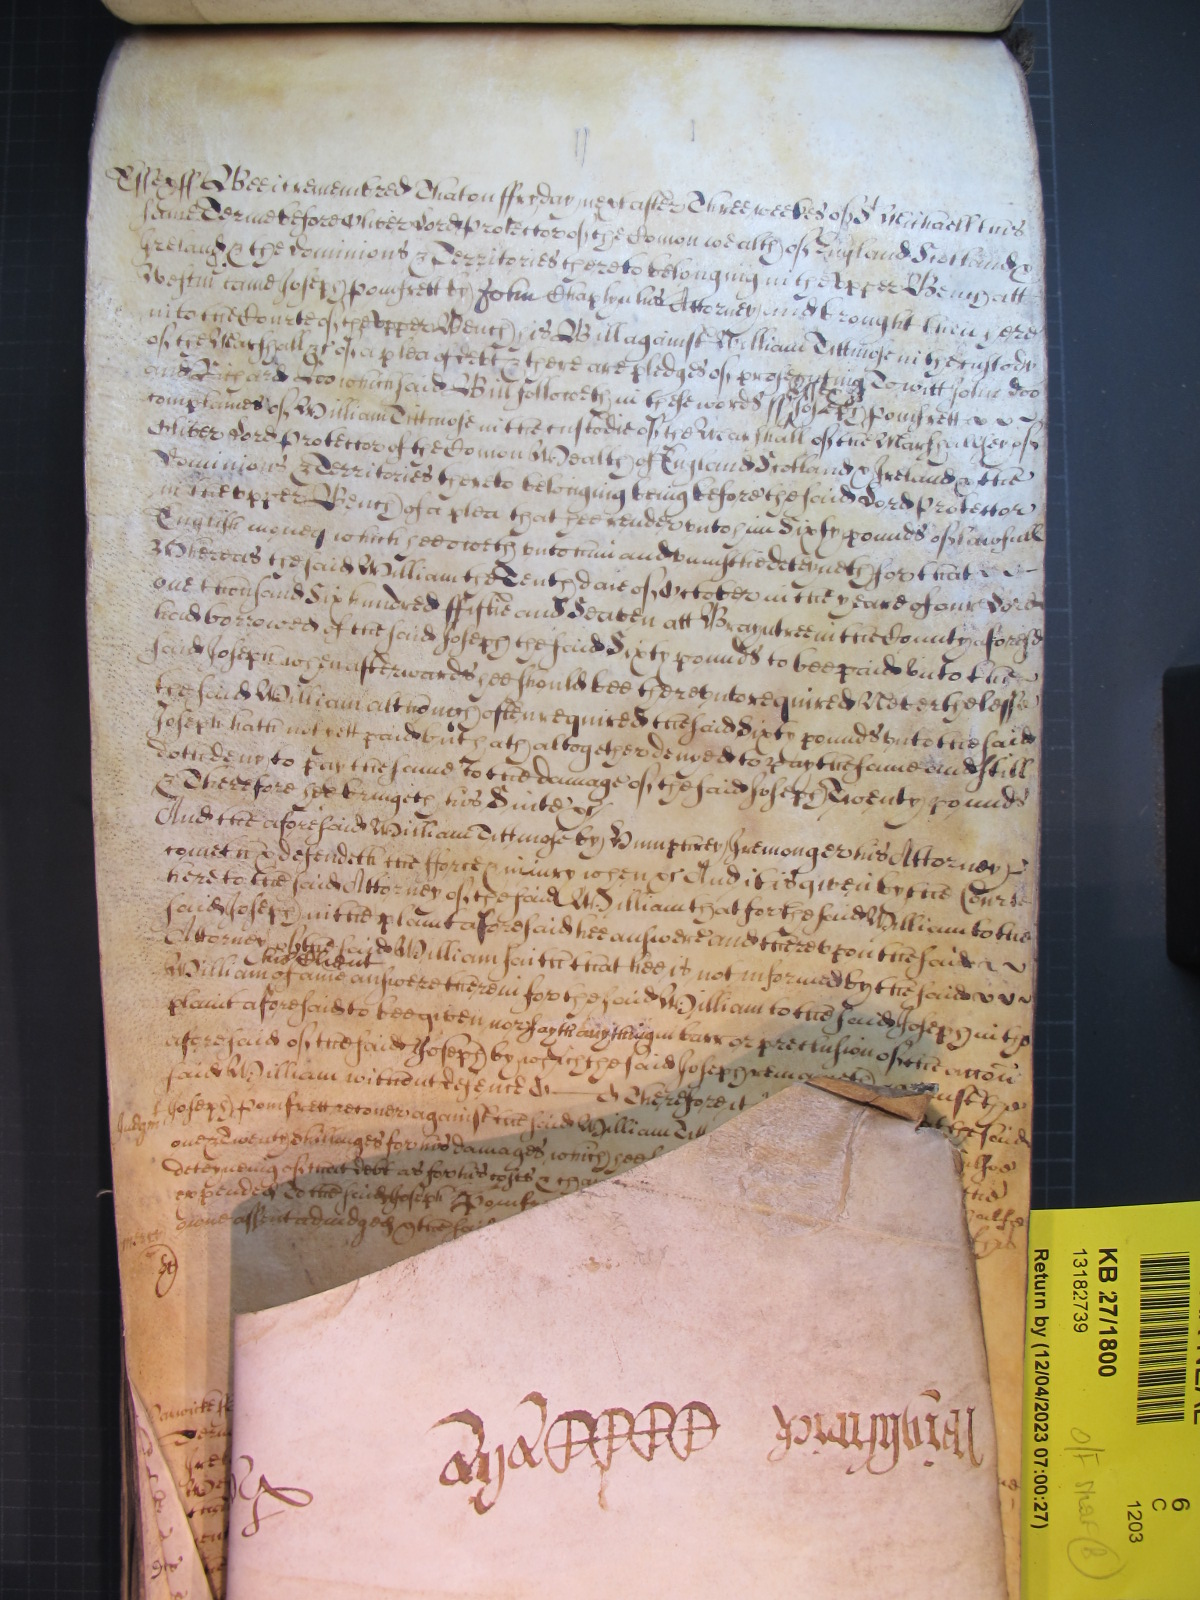 Essex ss Bee it remembred That on ffryday next after Three weekes of St Michaell this
same Terme before Oliver Lord Protector of the Comon wealth of England Scotland &
Ireland & the dominions & Territories thereto belonging in the Upper Bench att
Westm came Joseph Pomfrett by John Chaplyn his Attorney and brought then here
into the Courte of the Upper Bench is Bill against William Tittmose in the custody
of the Marshall &c of a plea of debt & there are pledges of prosecuting To witt John Doo
and Richard Roo which said Bill followeth in these words Essex ss Joseph Pomfrett
complaines of William Tittmose in the custodie of the Marshall of the Marshallsey of
Oliver Lord Protector of the Comon Wealth of England Scotland & Ireland & the
dominions & Territories thereto belonging being before the said Lord Protector
in the upper Bench of a plea that hee render unto him Sixty pounds of lawfull
English money which hee oweth unto him and uniustlie deteyneth for that
Whereas the said William the Tenth daie of October in the yeare of our Lord
one thousand Six hundred ffiftie and Seaven att Brayntree in the County aforesd
had borrowed of the said Joseph the said Sixty pounds to bee paid unto the
said Joseph when afterwards hee should bee thereunto required Neverthelesse
the said William although often required the said Sixty pounds unto the said
Joseph hath not yett paid but hath altogether denyed to pay the same and still
doth deny to pay the same To the damage of the said Joseph Twenty pounds
& Therefore hee bringeth his Suite &c
And the aforesaid William Tittmose by Humphrey Iremonger his Attorney
cometh & defendeth the fforce & iniury when &c And it is given by the Courte
here to the said Attorney of the said William that for the said William to the
said Joseph in the plaint aforesaid hee answere and thereupon the said
Attorney of the said William saith that hee is not informed by the said
his Client
William of anie answere therein for the said William to the said Joseph in the
plaint aforesaid to bee given nor sayth anything in barr or preclusion of the accon
aforesaid of the said Joseph by which the said Joseph remaineth against the
said William without defence &c Therefore it the said
Judgmt Joseph Pomfrett recover against the said William Titt
one & Twenty shillinges for his damages which hee
deteyneing of that debt as for his costs & char
expended To the said Joseph Pomfr
owne assent adiudged & the said
Warwicke
KB 27/1800
13182739
Return by (12/04/2023 07:00:27)
6
C
1203